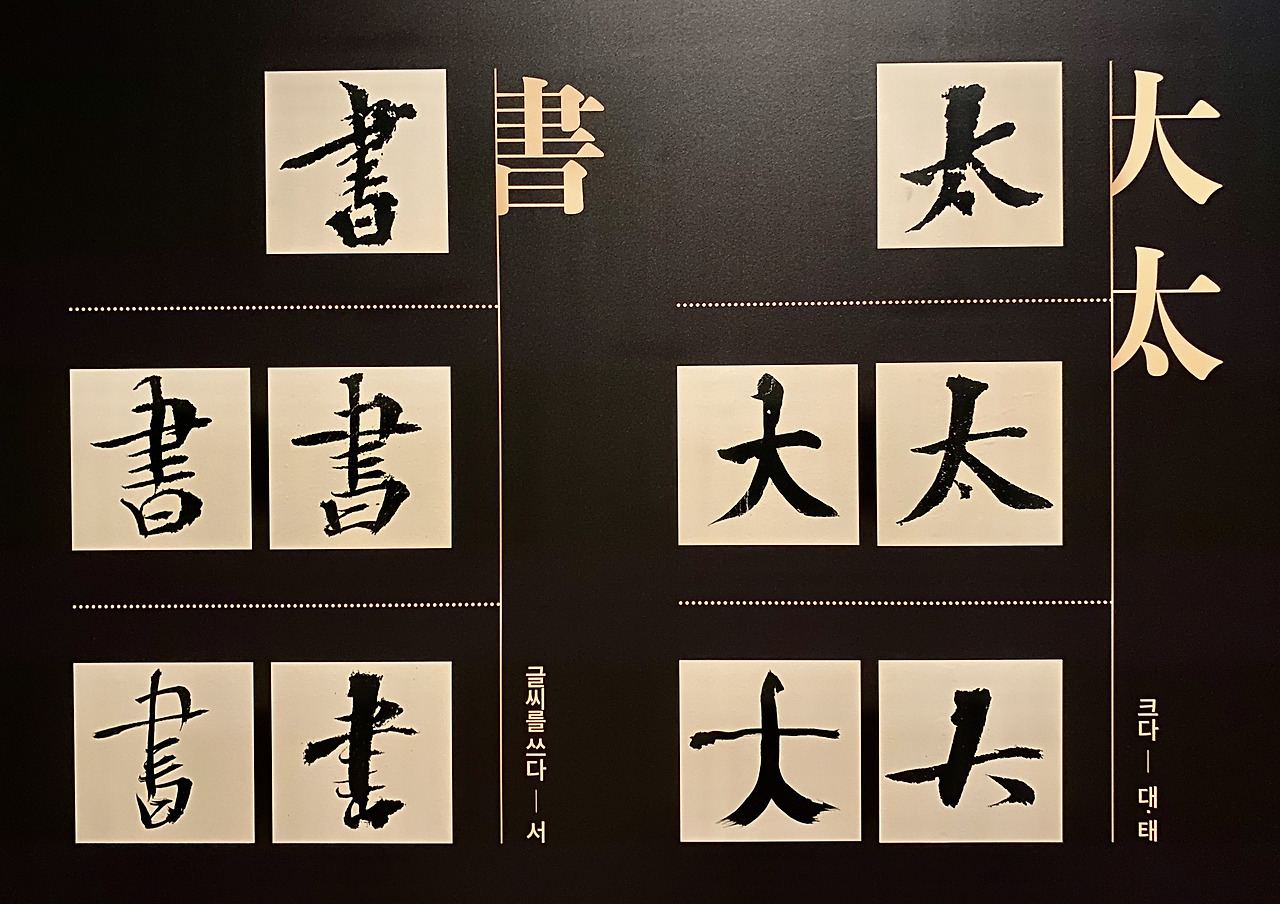 大
太
크다 — 대·태
太
太
大
大
大
書
글씨를 쓰다 — 서
書
書
書
書
書